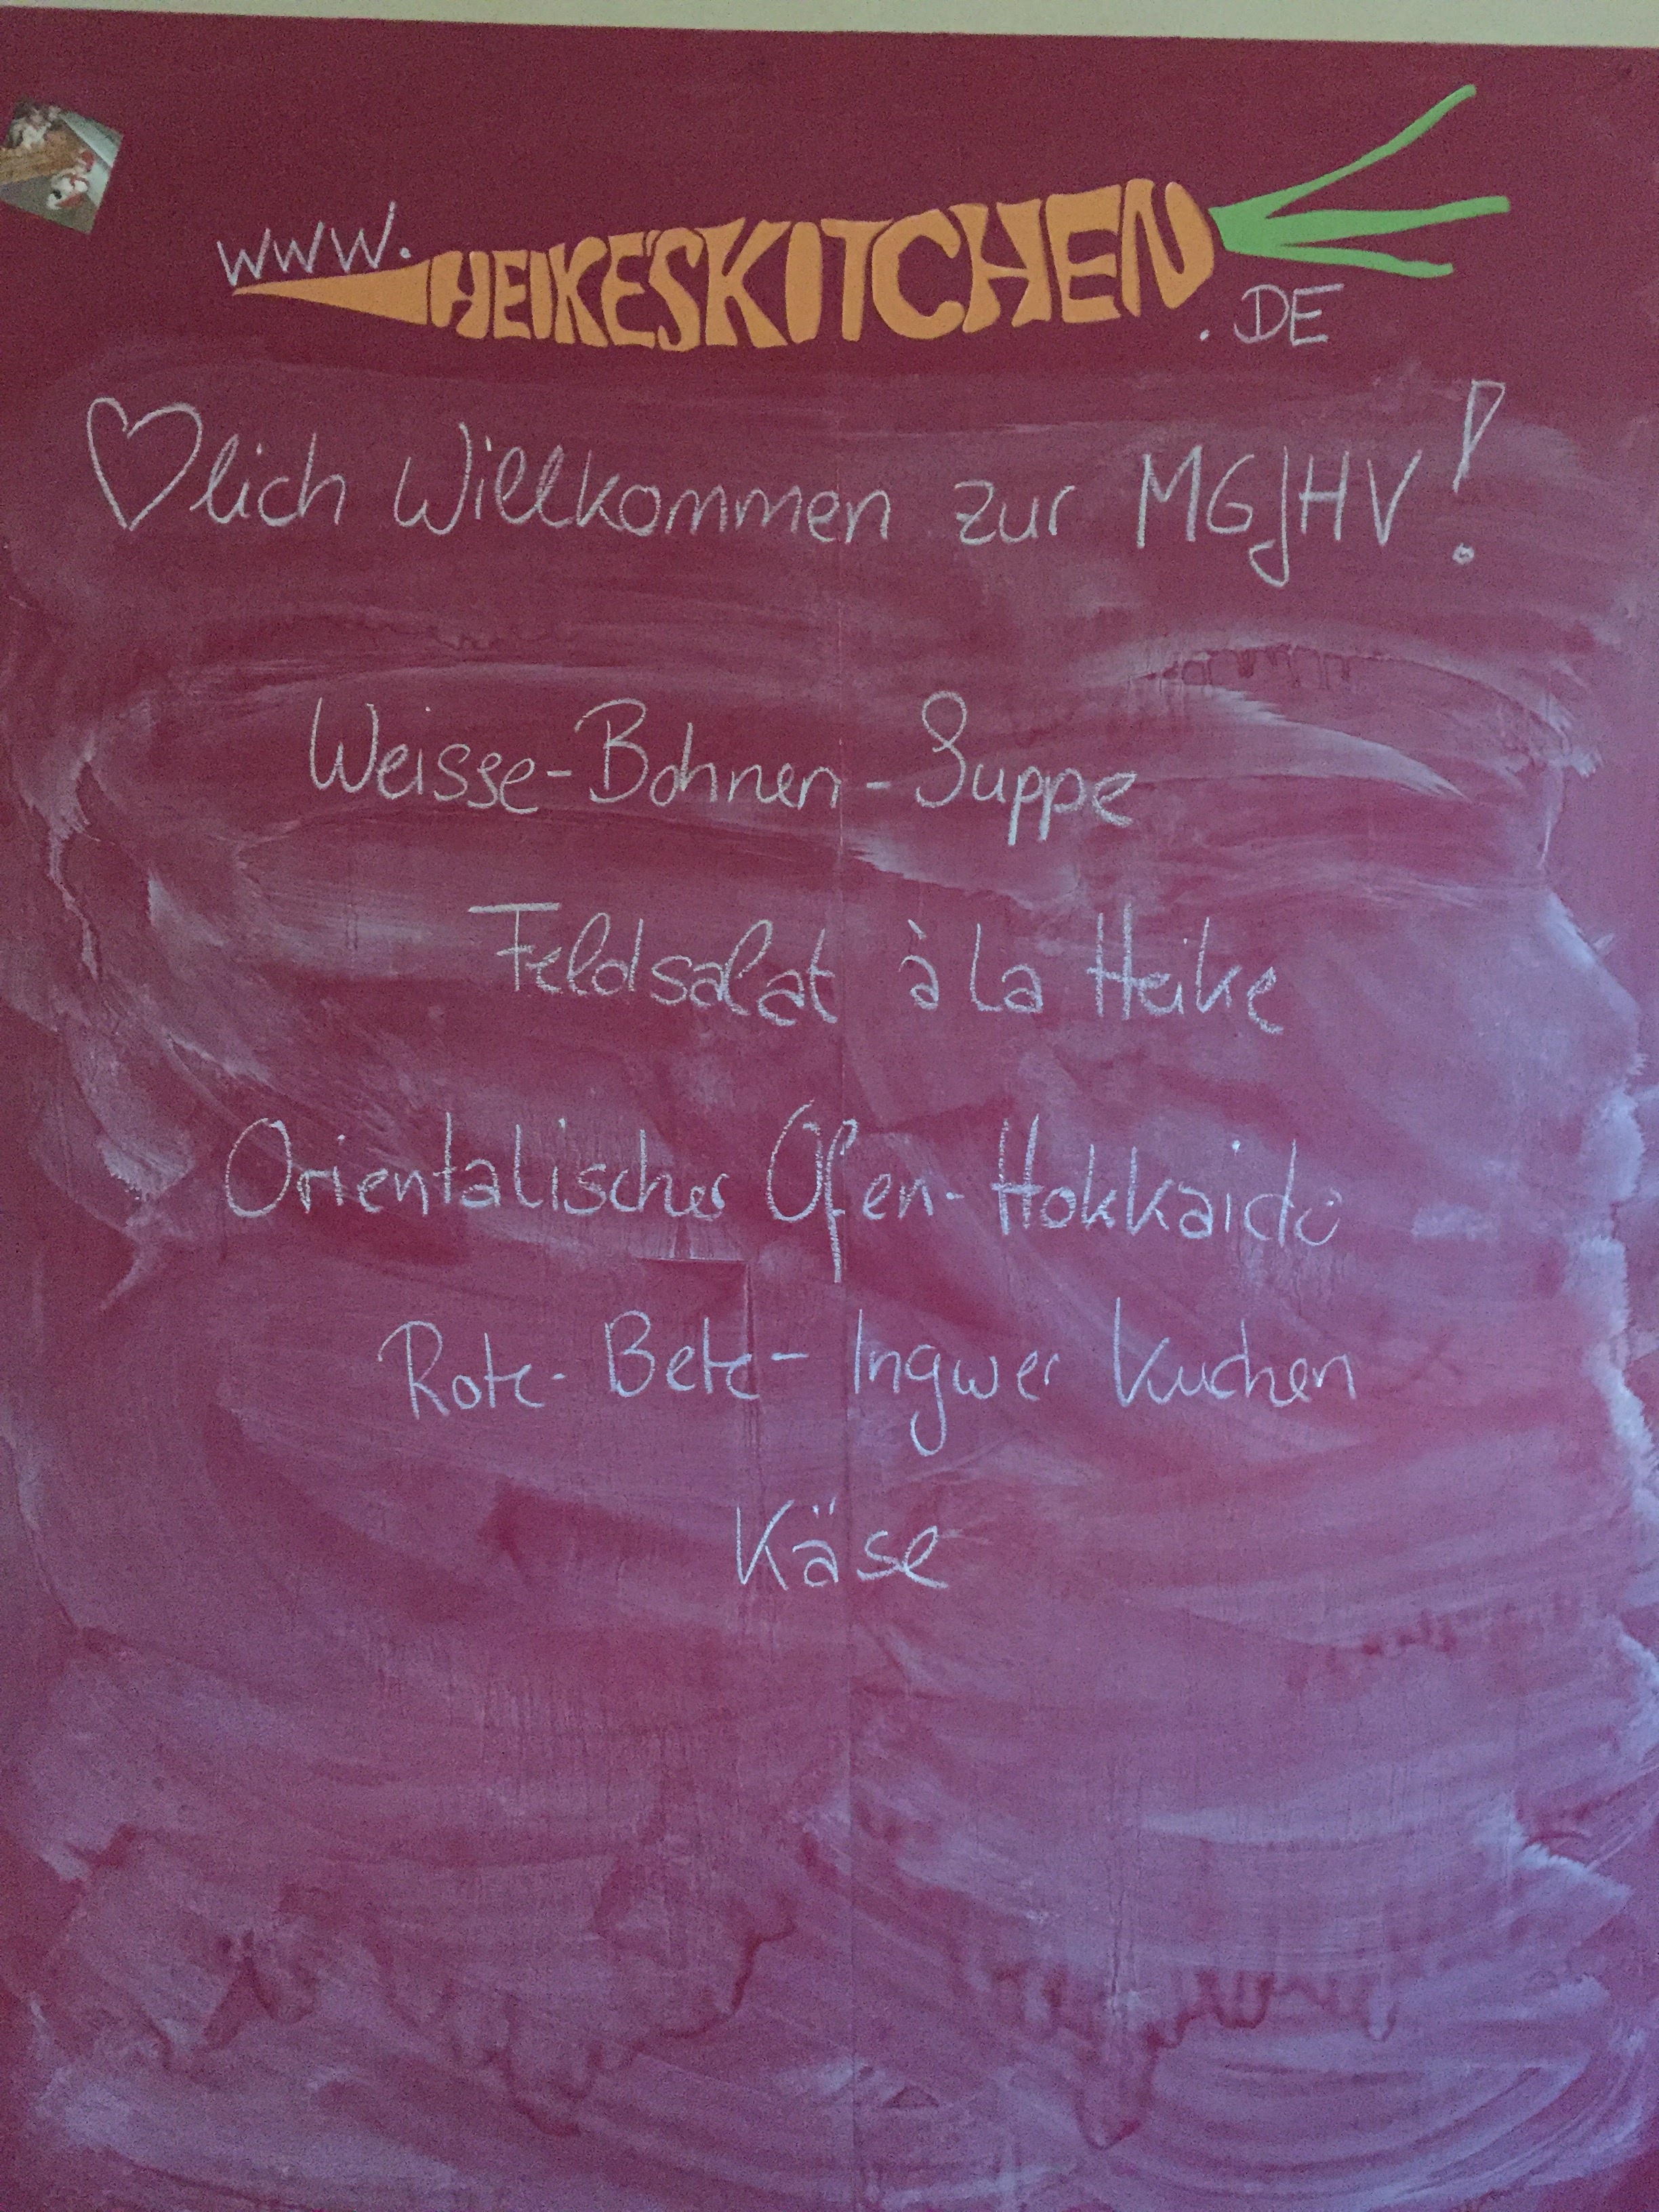 www.HEIKE'SKITCHEN.DE
♡lich Willkommen zur MGJHV!
Weisse-Bohnen-Suppe
Feldsalat à la Heike
Orientalischer Ofen-Hokkaido
Rote-Bete-Ingwer Kuchen
Käse